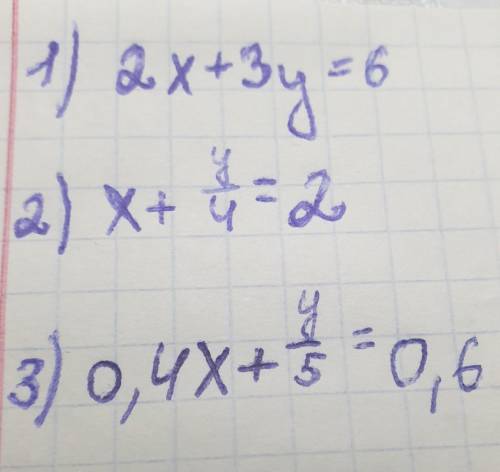 1) 2x+3y=6
2) x+y/4=2
3) 0,4x+y/5=0,6